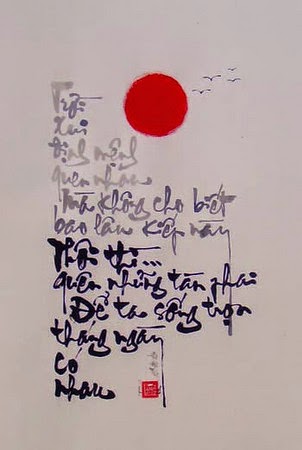 Trời
xui
định mệnh
quen nhau
Mà không cho biết
bao lâu kiếp này
Thôi thì...
quên những tàn phai
Để ta sống trọn
tháng ngày
có
nhau